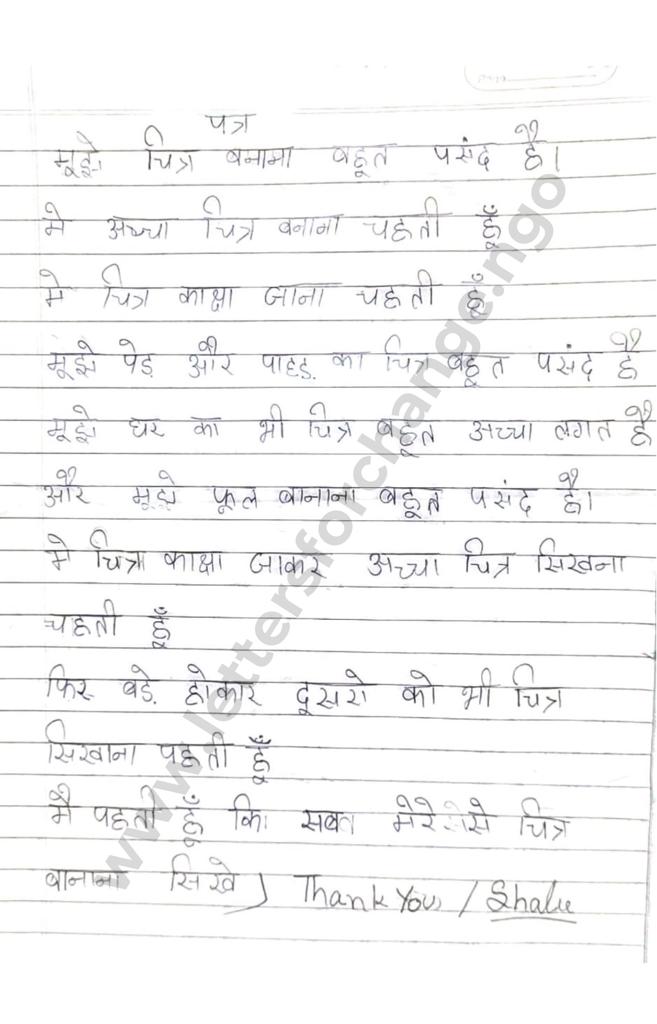 पत्र
मूझे चित्र बनामा बहुत पसंद है।
मे अच्चा चित्र बनाना चहती हूँ
मे चित्र काक्षा जाना चहती हूँ
मूझे पेड़ और पाहड़ का चित्र बहूत पसंद है
मूझे घर का भी चित्र बहूत अच्चा लगत है
और मूझे फूल बानाना बहूत पसंद है।
मे चित्रा काक्षा जाकर अच्चा चित्र सिखना
चहती हूँ
फिर बड़े होकार दूसरो को भी चित्र
सिखाना पहती हूँ
मै पहती हूँ कि सबत मेरे से चित्र
बानाना सिखे) Thank You / Shalu
www.lettersforchange.ngo